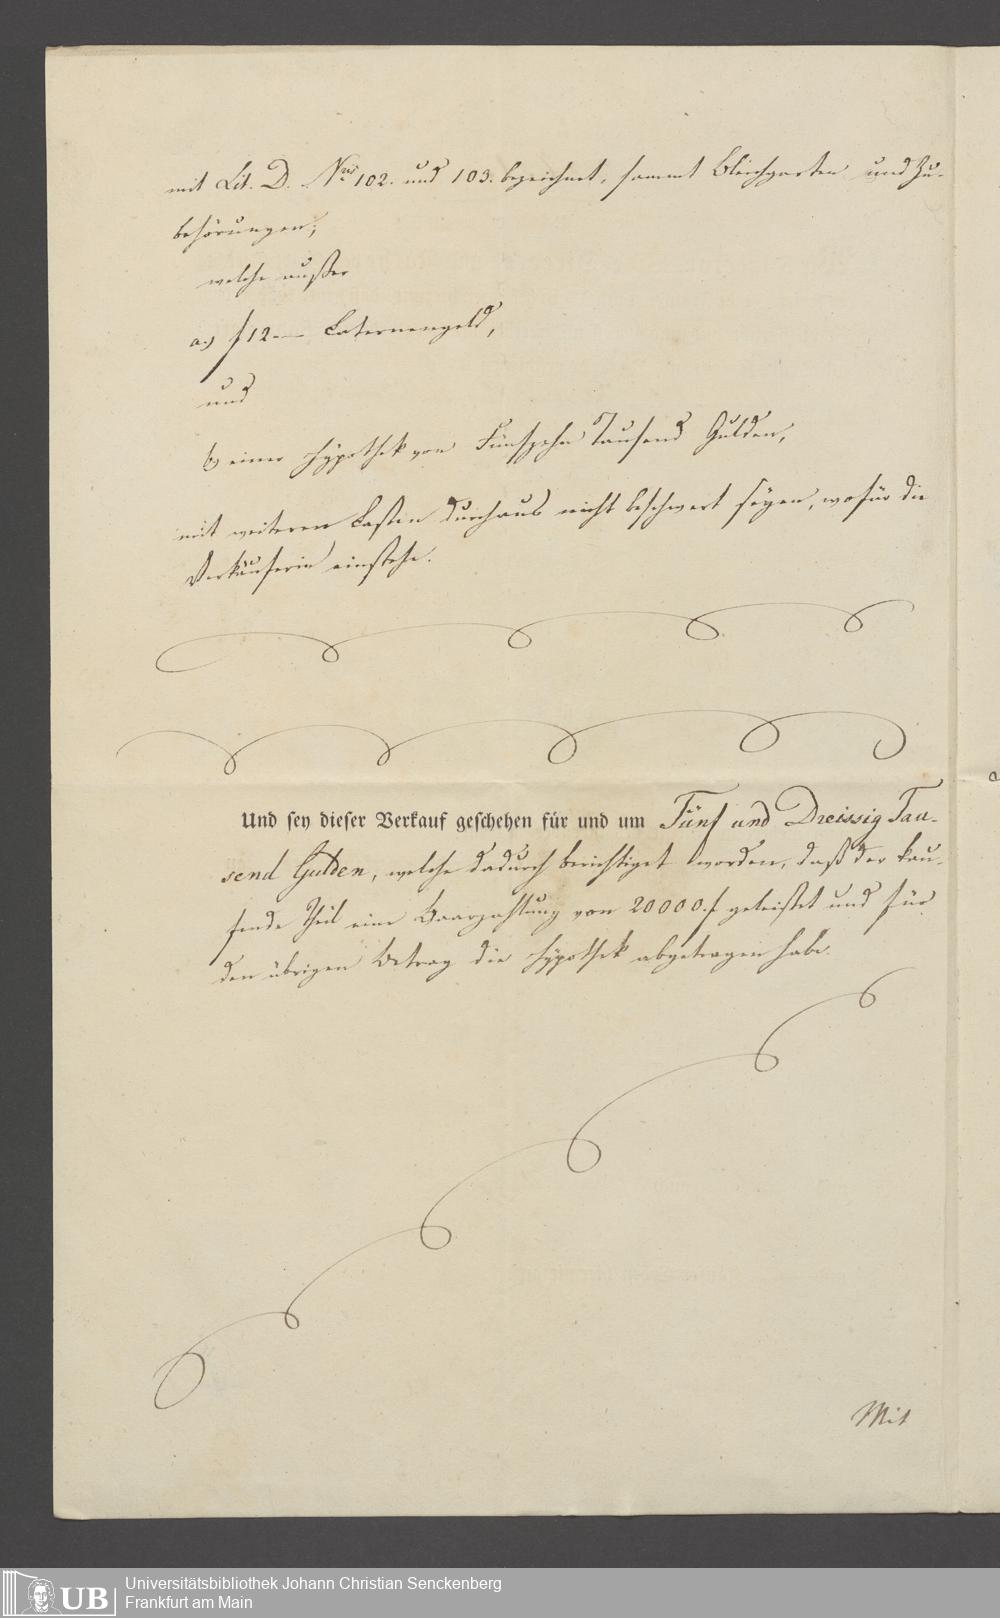 mit Lit. D. Nris 102. und 103. bezeichnet, sammt Bleichgarten und Zu-
behörungen;
welche außer
a.) f 12.— Laternengeld,
und
b) einer Hypothek von Fünfzehn Tausend Gulden,
mit weiteren Lasten durchaus nicht beschwert seyen, wofür die
Verkäuferin einstehe.
Und sey dieser Verkauf geschehen für und um Fünf und Dreissig Tau-
send Gulden, welche dadurch berichtiget worden, daß der kau-
fende Theil eine Baarzahlung von 20000.f geleistet und für
den übrigen Betrag die Hypothek abgetragen habe.
Mit
UB
Universitätsbibliothek Johann Christian Senckenberg
Frankfurt am Main